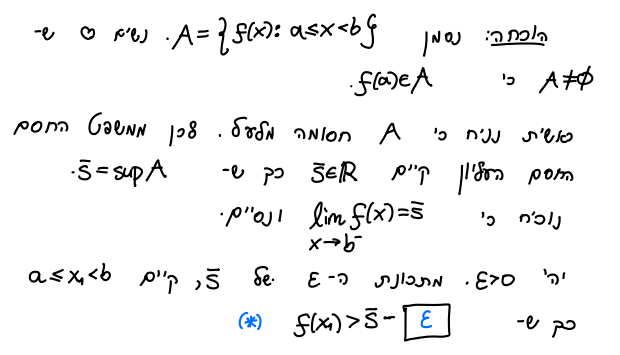 הוכחה: נסמן A = {f(x): a≤x<b}. נשים ♡ ש-
A≠∅ כי f(a)∈A.
ראשית נניח כי A חסומה מלעיל. לכן ממשפט החסם
החסם העליון קיים s̄∈ℝ כך ש- s̄=sup A.
נוכיח כי lim f(x)=s̄ ונסיים.
x→b⁻
יהי ε>0. מתכונת ה-ε של s̄, קיים a≤x₁<b
כך ש- f(x₁)>s̄-ε (*)